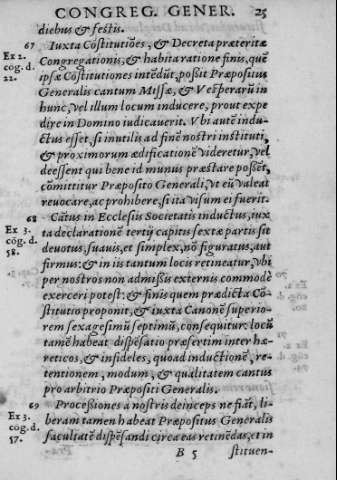 CONGREG. GENER. 25
diebus & festis.
67 Iuxta Cõstitutiões, & Decreta præteritæ
Ex 2. Congregationis, & habita ratione finis, quẽ
cõg. d. ipsæ Cõstitutiones intẽdũt, possit Præpositus
22. Generalis cantum Missæ, & Vesperarũ in
hunc, vel illum locum inducere, prout expe
dire in Domino iudicauerit. Vbi autẽ indu-
ctus esset, si inutilis ad finẽ nostri instituti,
& proximorum ædificationẽ videretur, vel
deessent qui bene id munus præstare possẽt,
cõmittitur Præposito Generali, vt eũ valeat
reuocare, ac prohibere, si ita visum ei fuerit.
68 Cãtus in Ecclesiis Societatis inductus, iux
Ex 3. ta declarationẽ tertij capitis sextæ partis sit
cõg. d. deuotus, suauis, et simplex, nõ figuratus, aut
58. firmus: & in iis tantum locis retineatur, vbi
per nostros non admissis externis commodè
exerceri potest: & finis quem prædicta Cõ-
stitutio proponit, & iuxta Canonẽ superio-
rem sexagesimũ septimũ, consequitur: locũ
tamẽ habeat dispẽsatio præsertim inter hæ-
reticos, & infideles, quoad inductionẽ, re-
tentionem, modum, & qualitatem cantus
pro arbitrio Præpositi Generalis.
69 Processiones a nostris deinceps ne fiãt, li-
Ex 3. beram tamen habeat Præpositus Generalis
cõg. d. facultatẽ dispẽsandi circa eas retinẽdas, et in
57. B 5 stituen-